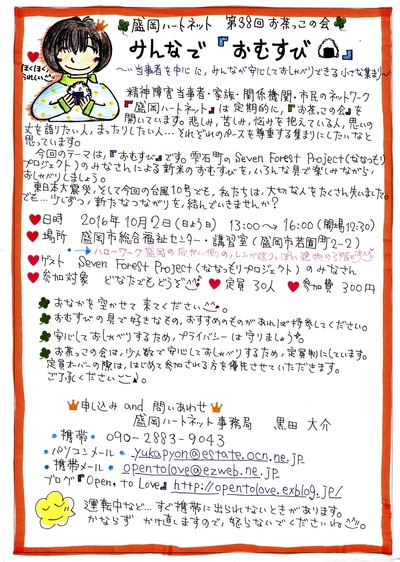 盛岡ハートネット 第38回お茶っこの会
みんなで『おむすび』
～当事者を中心に、みんなが安心しておしゃべりできる小さな集まり～
ほくほく
うれしいな
精神障害当事者・家族・関係機関・市民のネットワーク
『盛岡ハートネット』は定期的に、『お茶っこの会』を
開いています。悲しみ、苦しみ、悩みを抱えている人、思いの
丈を語りたい人、まったりしたい人…それぞれのペースを尊重する集まりにしたいなと
思っています。
今回のテーマは、『おむすび』です。雫石町のSeven Forest Project(ななつもり
プロジェクト)のみなさんによる新米のおむすびを、いろんな具で楽しみながら、
おしゃべりしましょう。
東日本大震災、そして今回の台風10号でも、私たちは、大切な人をたくさん失いました。
でも…少しずつ、新たなつながりを、結んでいきませんか?
日時 2016年10月2日(日よう日) 13:00→16:00(開場12:30)
場所 盛岡市総合福祉センター・講習室(盛岡市若園町2-2)
ハローワーク盛岡の向かい側の、レンガ造りっぽい建物の3階です
ゲスト Seven Forest Project(ななつもりプロジェクト)のみなさん
参加対象 どなたでもどうぞ 定員30人 参加費300円
おなかを空かせて来てください。
おむすびの具で好きなもの、おすすめのものがあれば持参してください。
安心しておしゃべりするため、プライバシーは守りましょう。
お茶っこの会は、少人数で安心しておしゃべりするため、定員制にしています。
定員オーバーの際は、はじめて参加される方を優先させていただきます。
ご了承ください。
申し込み and 問いあわせ
盛岡ハートネット事務局 黒田大介
携帯・090-2883-9043
パソコンメール・yukapyon@estate.ocn.ne.jp
携帯メール・opentolove@ezweb.ne.jp
ブログ『Open, to Love』http://opentolove.exblog.jp/
運転中など…すぐ携帯に出られないときがあります。
かならず かけ直しますので、怒らないでくださいね。